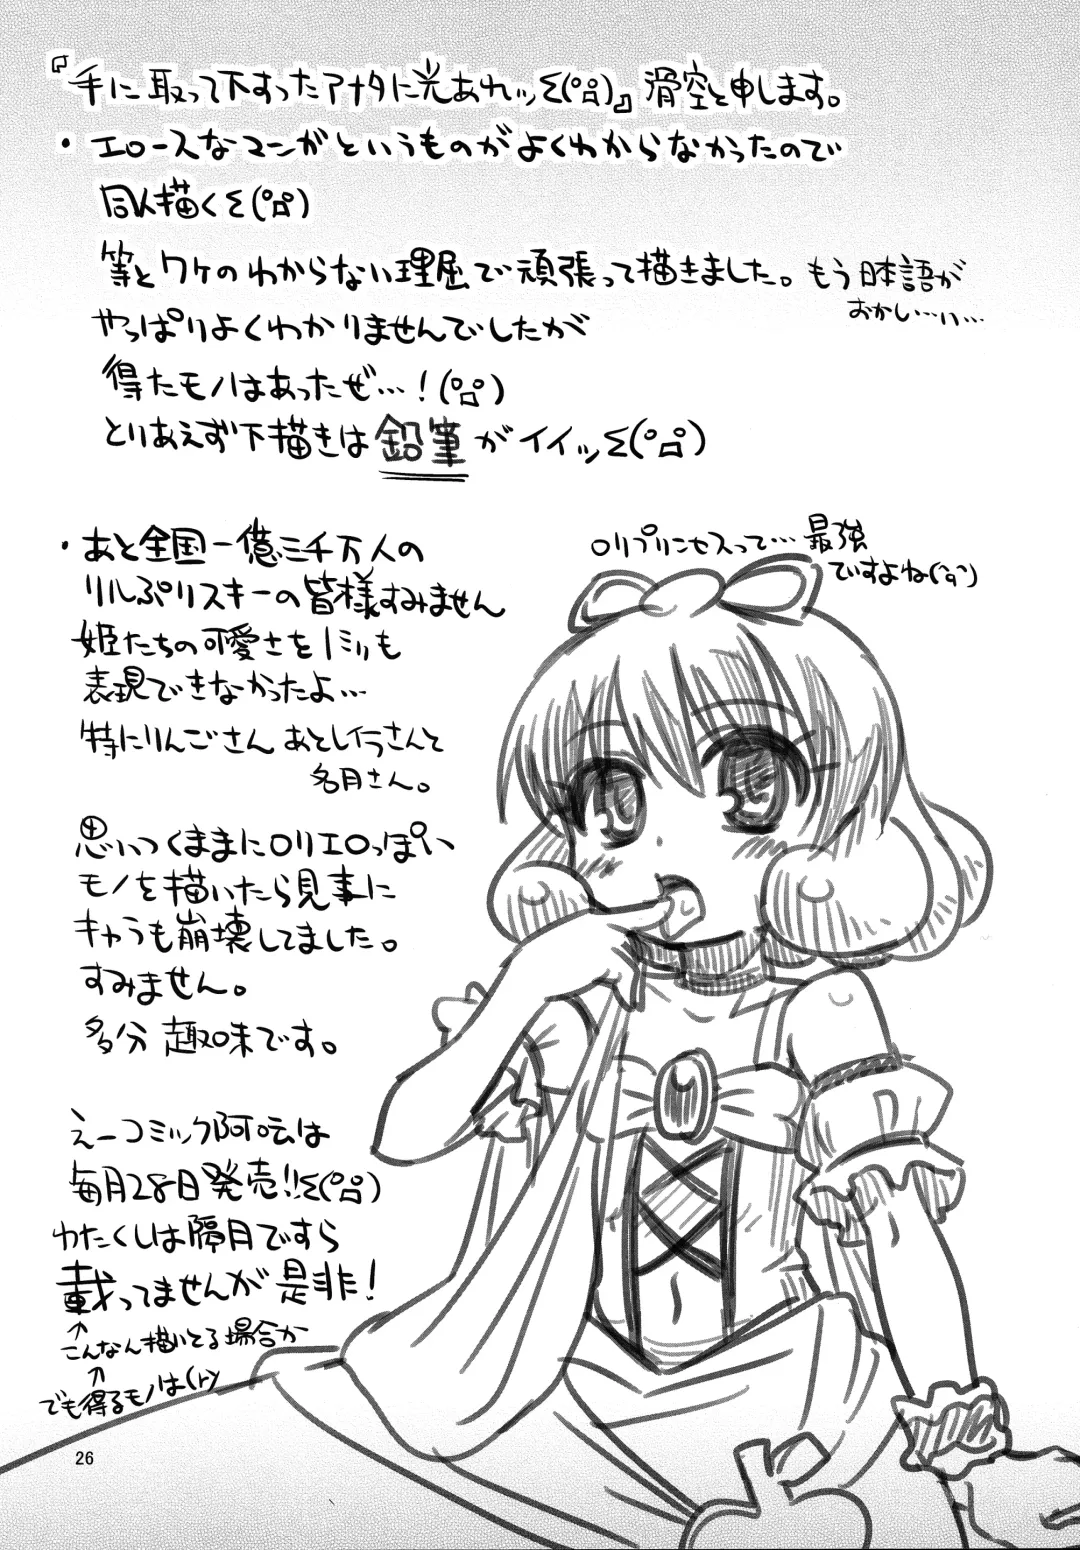 『手に取って下すったアナタに光あれッΣ(ﾟДﾟ)』滑空と申します。
・エロースなマンガというものがよくわからなかったので
同人描くΣ(ﾟДﾟ)
等とワケのわからない理屈で頑張って描きました。もう日本語が
おかしい…いい…
やっぱりよくわかりませんでしたが
得たモノはあったぜ…!(ﾟДﾟ)
とりあえず下描きは鉛筆がイイッΣ(ﾟДﾟ)
ロリプリンセスって…最強
ですよね(ﾟдﾟ)
・あと全国一億三千万人の
リルぷりスキーの皆様すみません
姫たちの可愛さを1ミリも
表現できなかったよ…
特にりんごさん あとレイラさんと
名月さん。
思いつくままにロリエロっぽい
モノを描いたら見事に
キャラも崩壊してました。
すみません。
多分 趣味です。
えーコミック阿吽は
毎月28日発売!!Σ(ﾟДﾟ)
わたくしは隔月ですら
載ってませんが是非!
↑
こんなん描いてる場合か
↑
でも得るモノは(ry
26